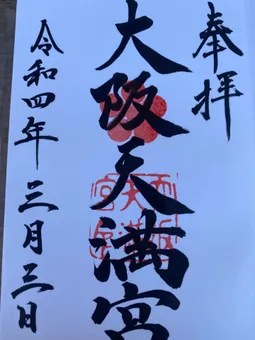 奉拝
大阪天満宮
令和四年三月三日